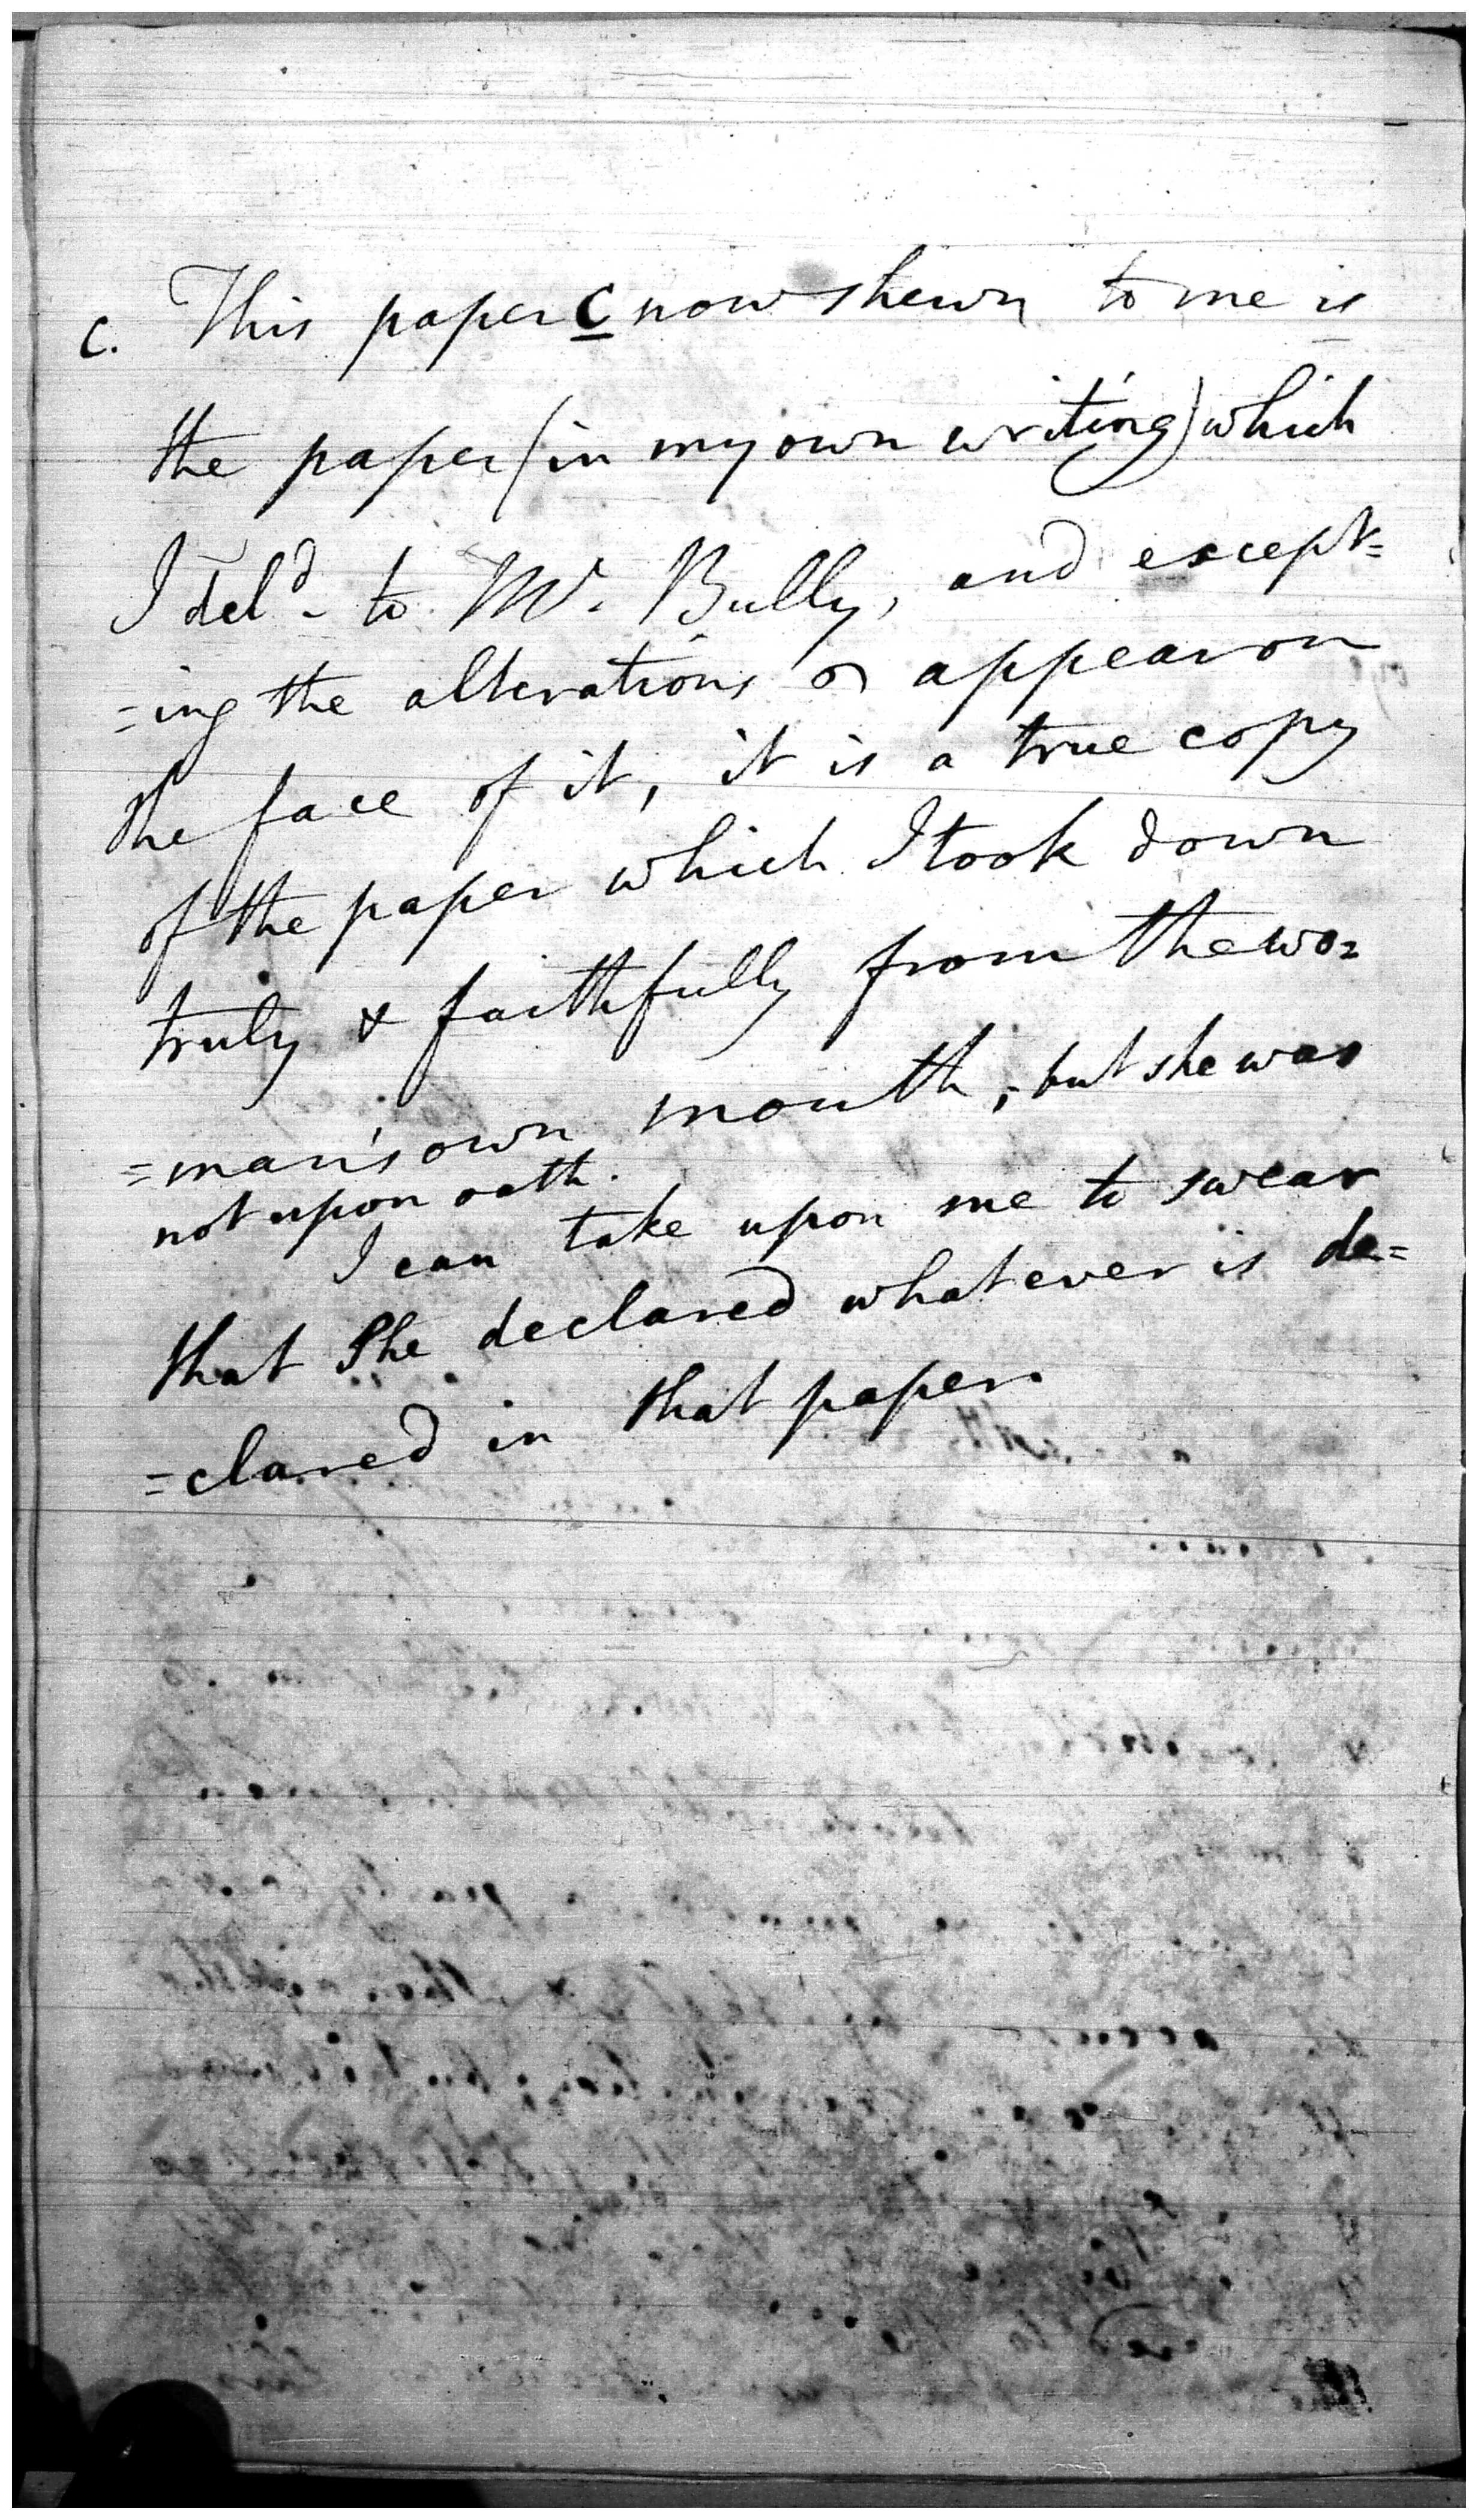 C. This paper C now shewn to me is
the paper (in my own writing) which
I deld. to Mr. Bully, and except=
=ing the alterations appear on
the face of it, it is a true copy
of the paper which I took down
truly & faithfully from the wo=
=man's own mouth; but she was
not upon oath.
I can take upon me to swear
that She declared whatever is de=
=clared in that paper.